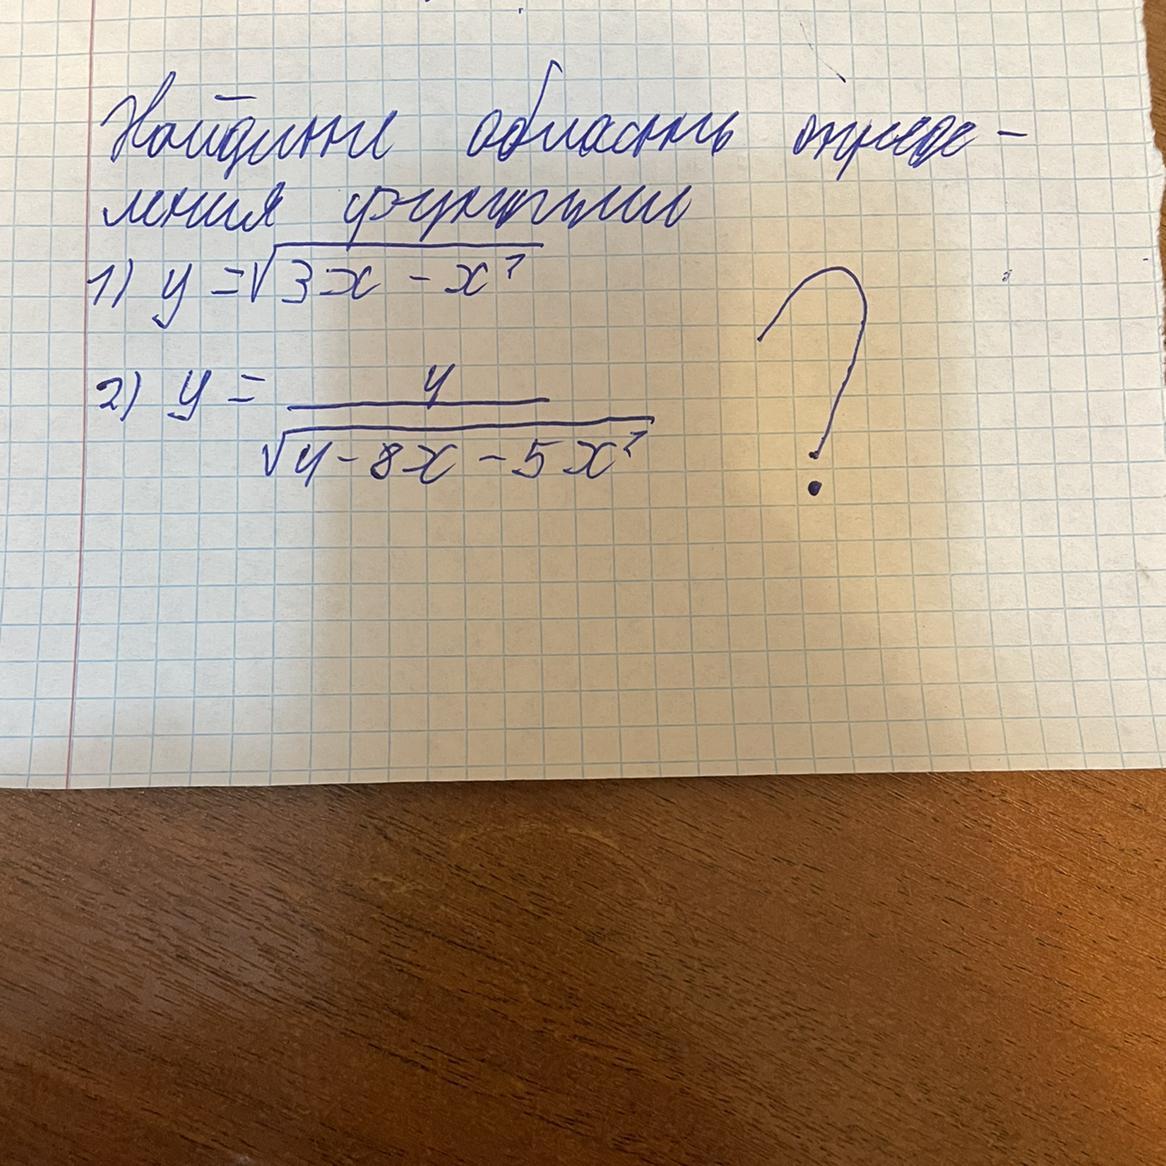 Найдите область опреде-
ления функции
1) y = √3x - x²
2) y = 4
√4-8x-5x²
?